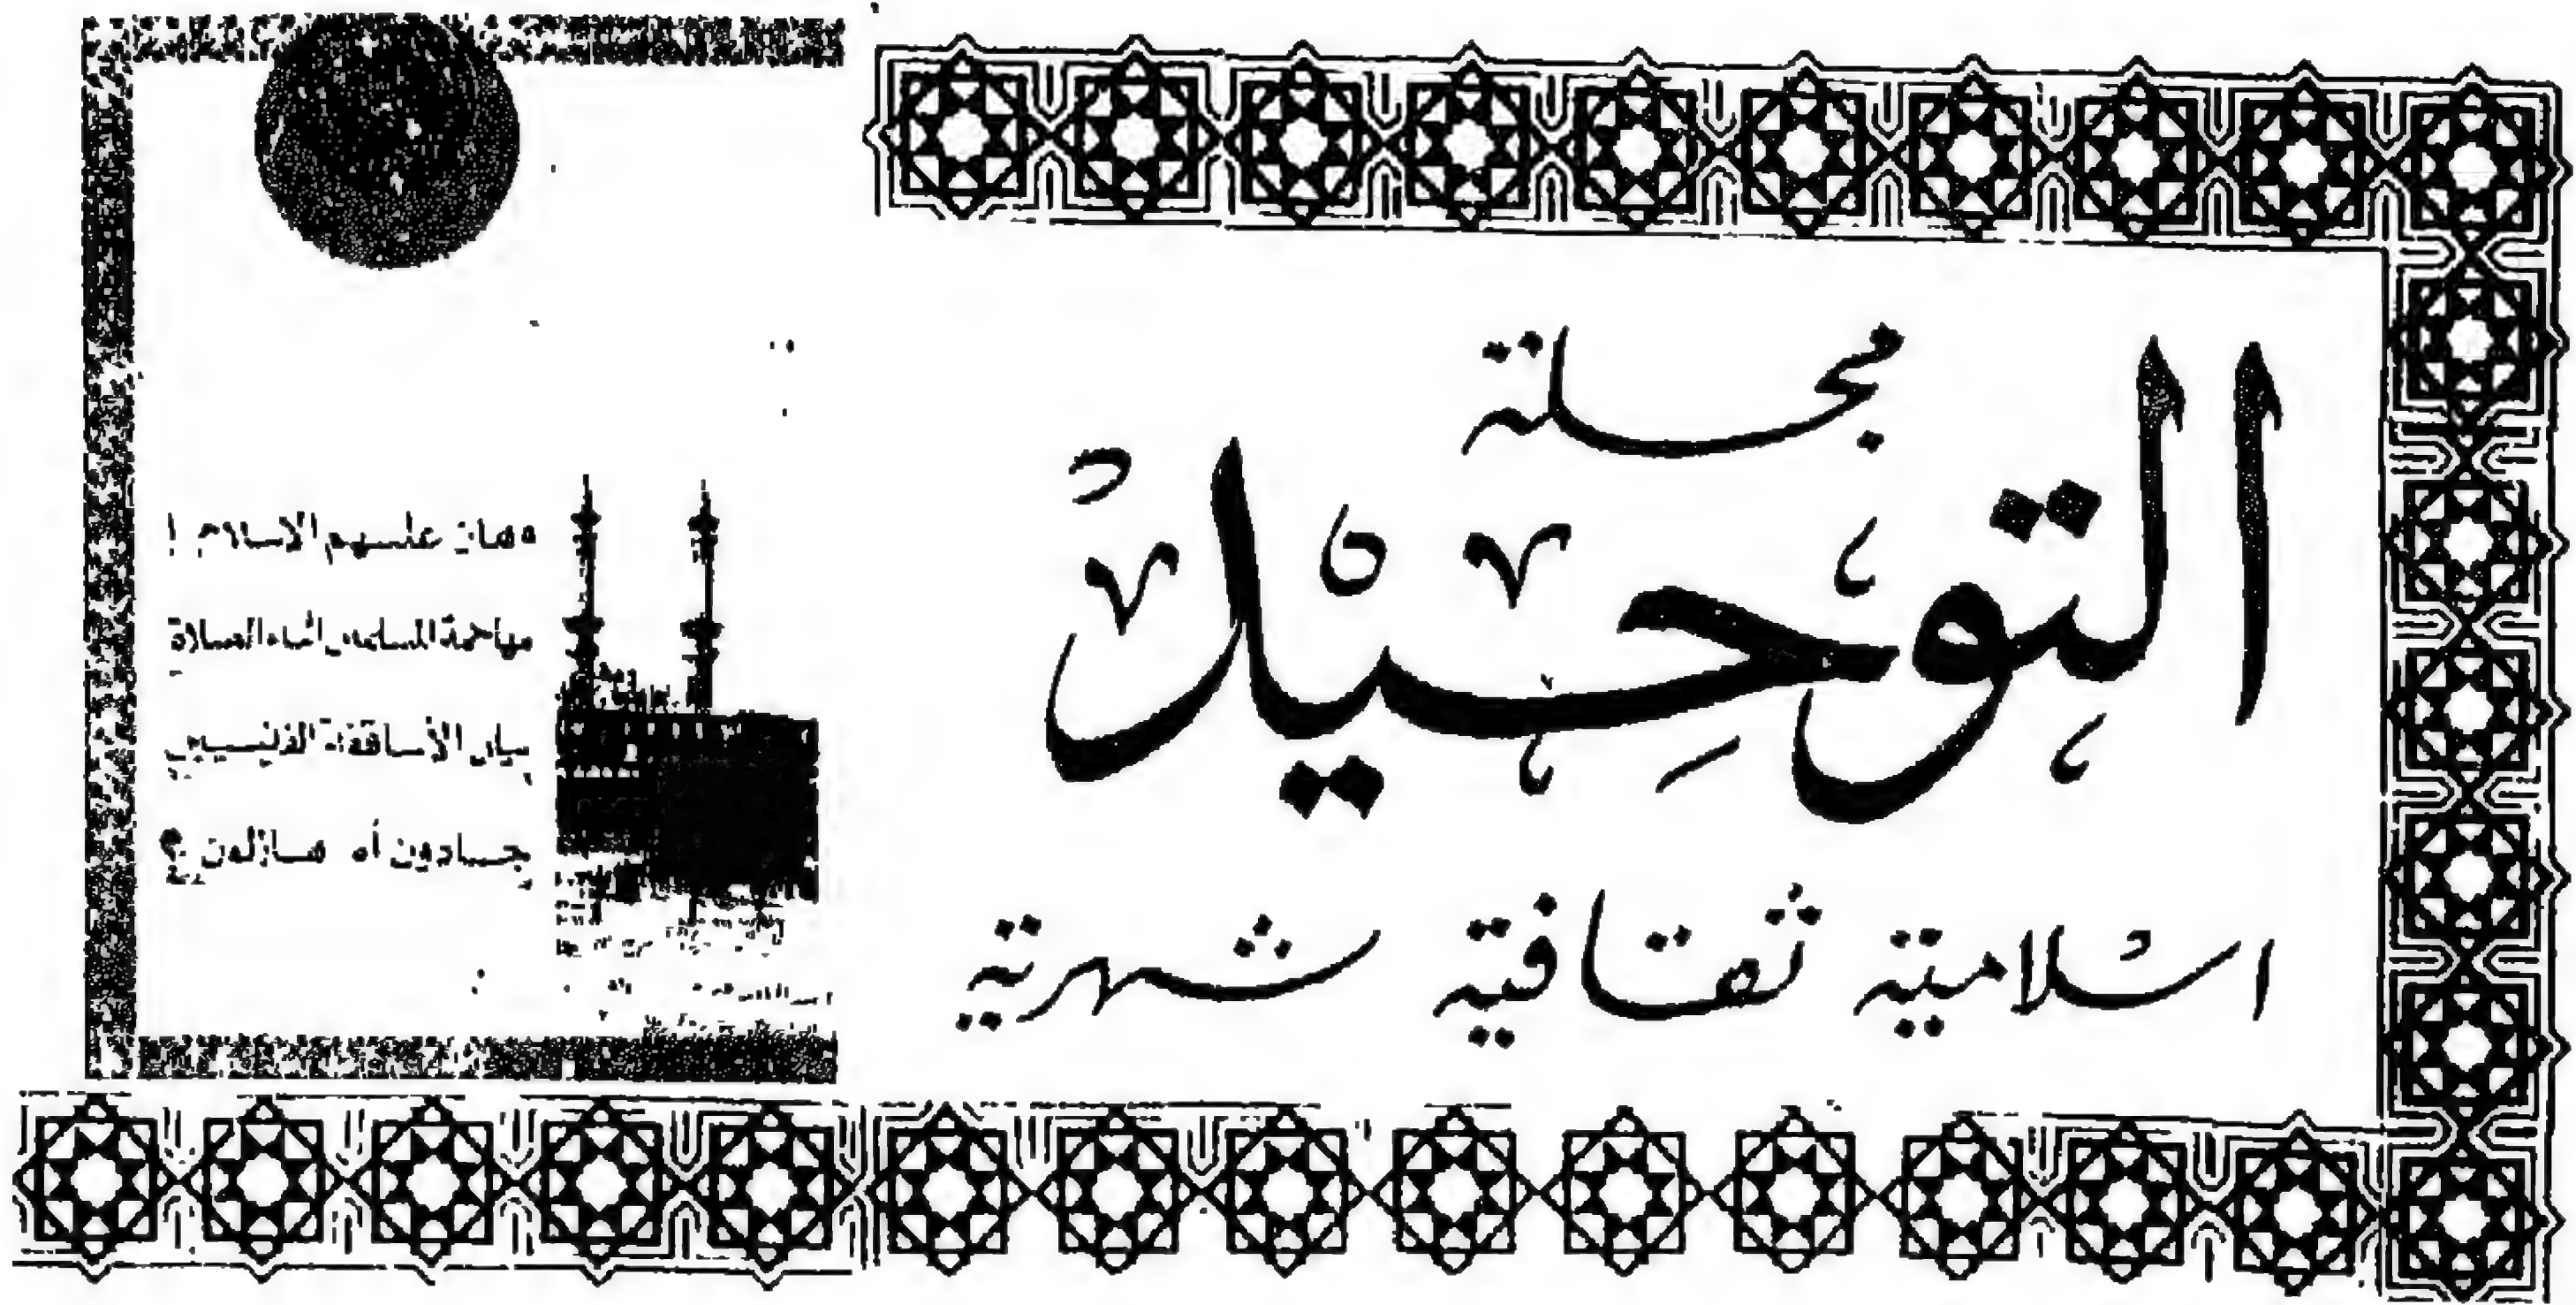 مجلة
التوحيد
اسلامية ثقافية شهرية
هان عليهم الاسلام !
مهاجمة المسلمين اثناء الصلاة
بيان الأساقفة
جادون أم هازلون ؟